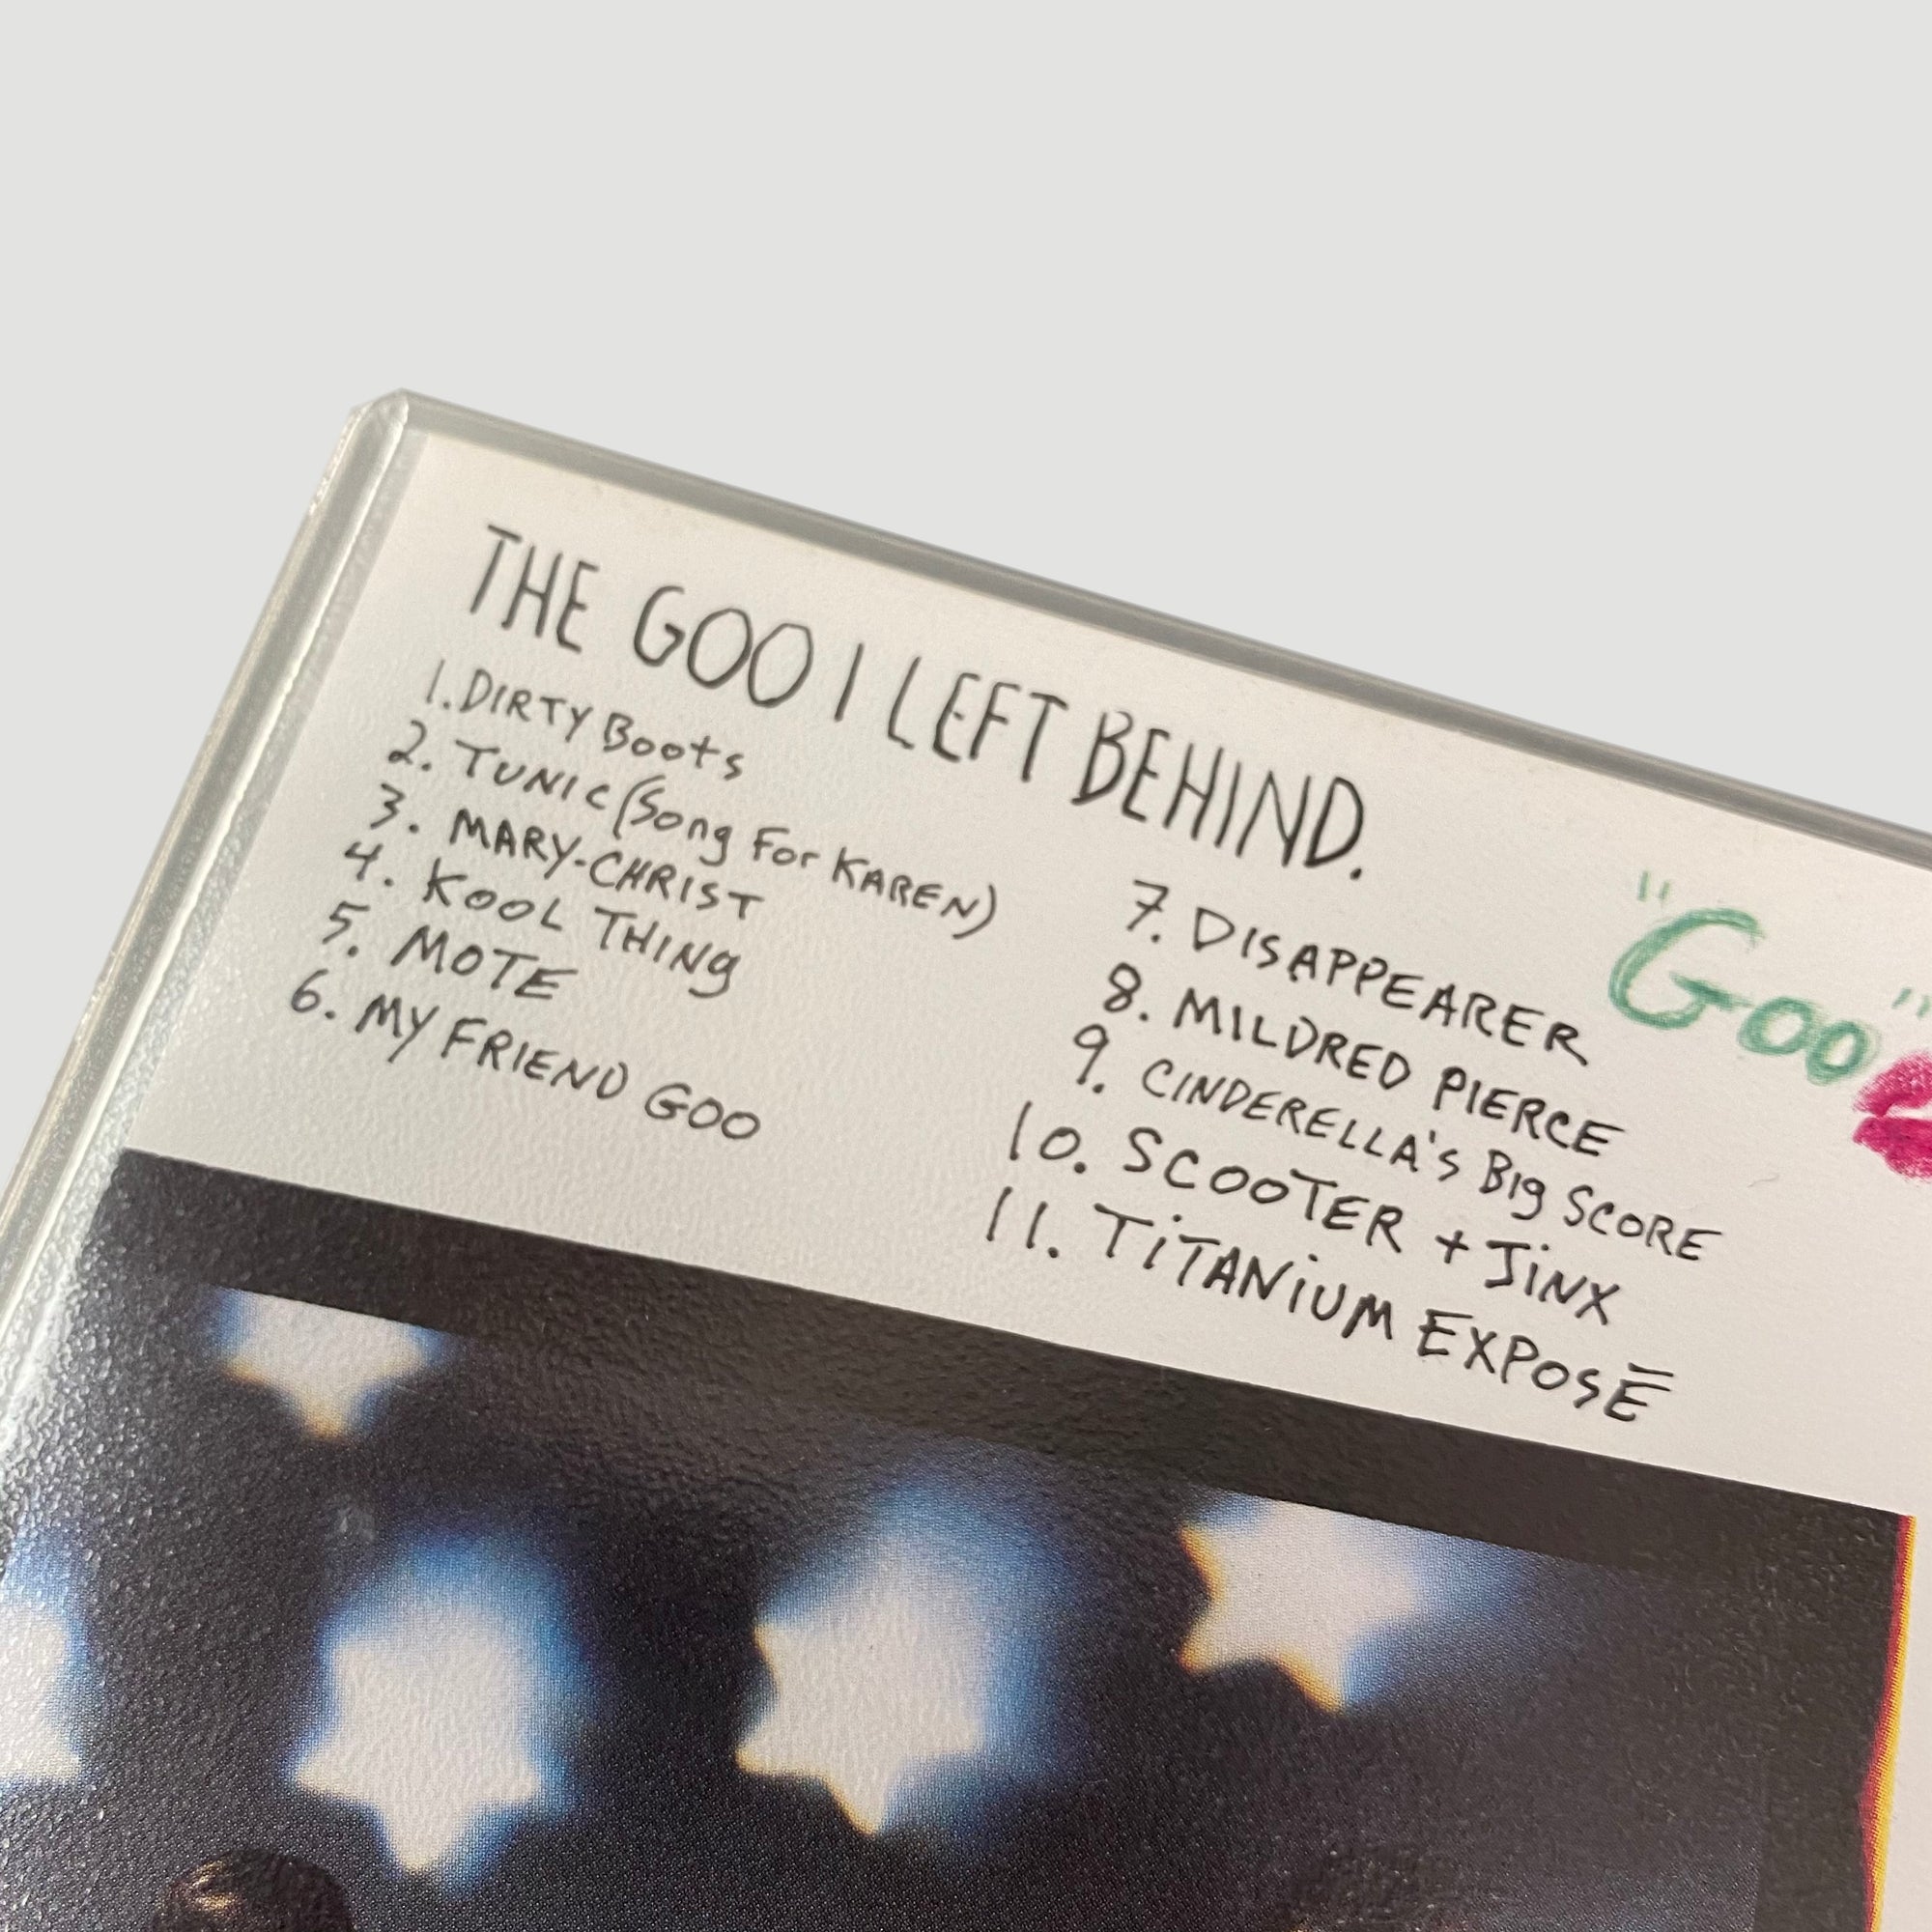 THE GOO I LEFT BEHIND.
1. DIRTY Boots
2. TUNIC (Song For KAREN)
3. MARY-CHRIST
4. KOOL THING
5. MOTE
6. MY FRIEND GOO
7. DISAPPEARER
8. MILDRED PIERCE
9. CINDERELLA'S Big SCORE
10. SCOOTER + JiNX
11. TiTANiUM EXPOSĒ
"Goo"